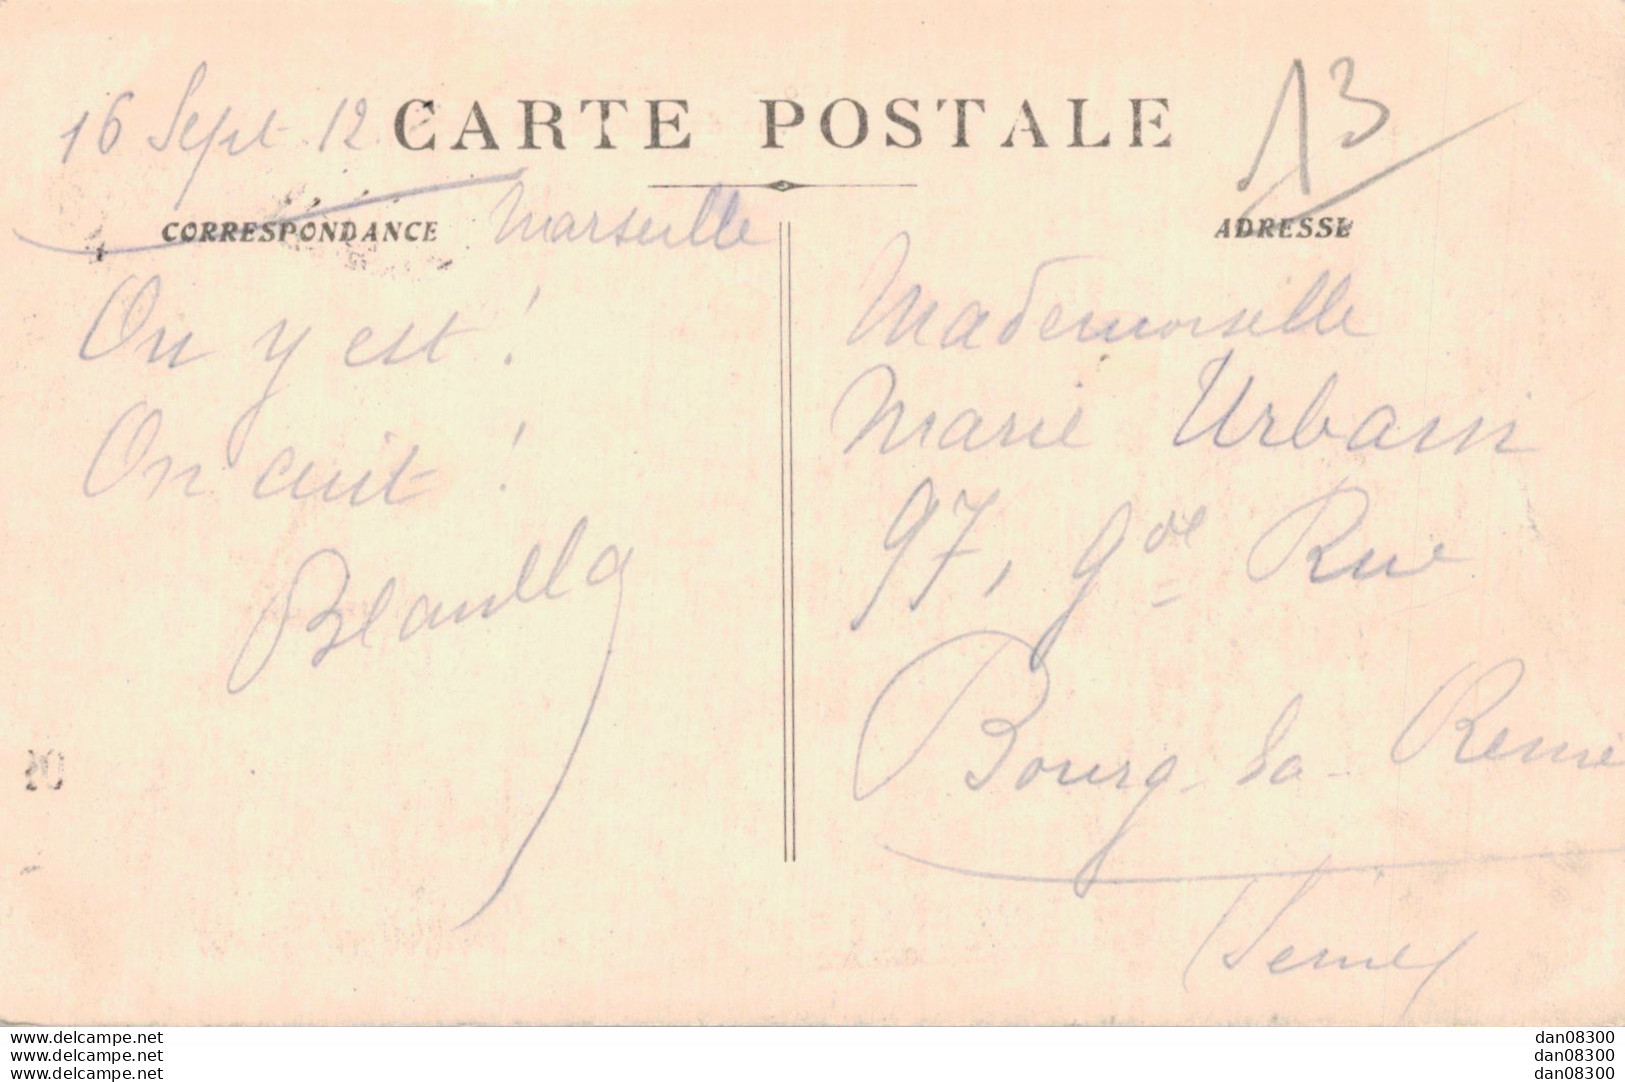 16 Sept. 12
CARTE POSTALE
13
CORRESPONDANCE
Marseille
ADRESSE
On y est !
On cuit !
Mademoiselle
Marie Urbain
97, gde Rue
Bourg-la-Reine
(Seine)
www.delcampe.net
www.delcampe.net
www.delcampe.net
dan08300
dan08300
dan08300